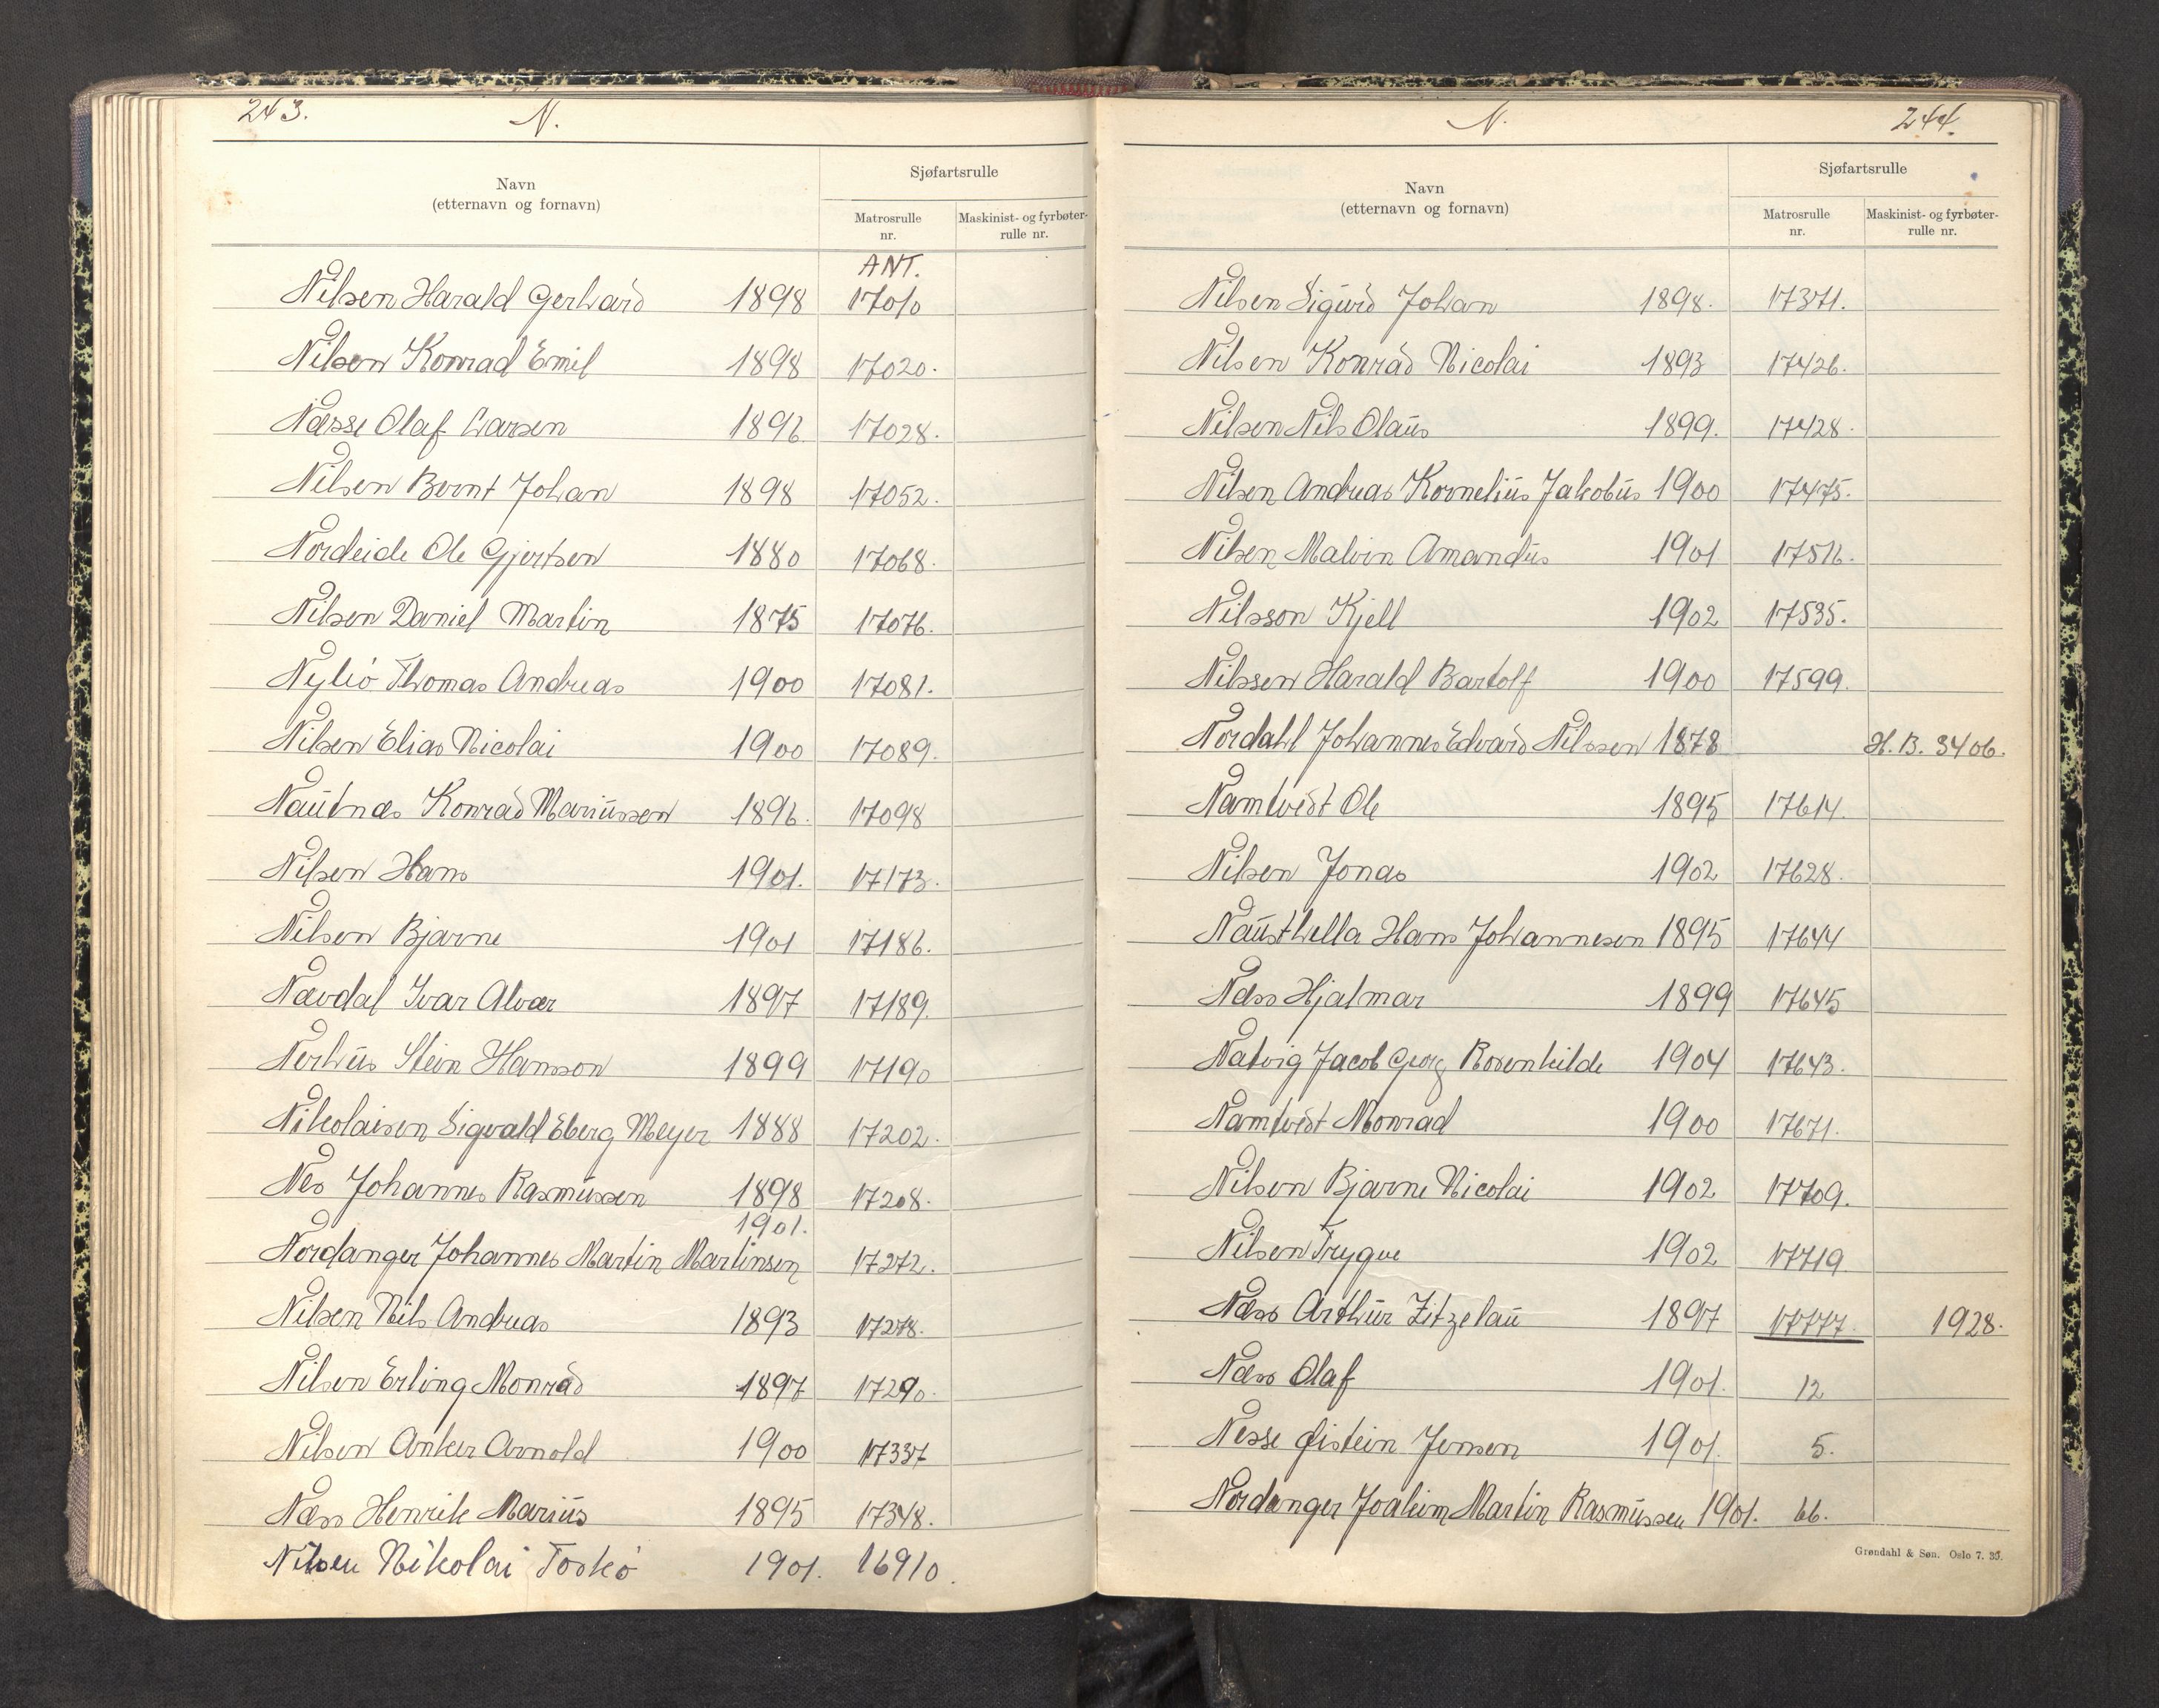 243.
N.
Navn
(etternavn og fornavn)
Sjøfartsrulle
Matrosrulle
nr.
Maskinist- og fyrbøter-
rulle nr.
ANT.
Nilsen Harald Gerhard 1898 17010
Nilsen Konrad Emil 1898 17020.
Næsse Olaf Larsen 1896 17028.
Nilsen Bernt Johan 1898 17052.
Nordeide Ole Gjertsen 1880 17068.
Nilsen Daniel Martin 1875 17076.
Thomas Andreas 1900 17081.
Nilsen Elias Nicolai 1900 17089.
Nautnæs Konrad Mariussen 1896. 17098
Nilsen Hans 1901. 17173.
Nilsen Bjarne 1901 17186.
Nævdal Ivar Alvær 1897 17189.
Nerhus Stein Hansson 1899 17190
Nikolaisen Sigvald Eberg Meyer 1888 17202.
Nes Johannes Rasmussen 1898 17208.
1901.
Nordanger Johannes Martin Martinsen 17272.
Nilsen Nils Andreas 1893 17278.
Nilsen Erling Monrad 1897 17290.
Nilsen Anker Arnold 1900 17337
Næss Henrik Marius 1895 17348.
Nilsen Nikolai Toskø 1901. 16910.
N.
244.
Navn
(etternavn og fornavn)
Sjøfartsrulle
Matrosrulle
nr.
Maskinist- og fyrbøter-
rulle nr.
Nilsen Sigurd Johan 1898. 17371.
Nilsen Konrad Nicolai 1893 17426.
Nilsen Nils Olaus 1899. 17428.
Nilsen Andreas Kornelius Jakobus 1900 17475.
Nilsen Malvin Amandus 1901 17516.
Nilsson Kjell 1902 17535.
Nilssen Harald Bartolf 1900 17599.
Nordahl Johannes Edvard Nilssen 1878 H.B. 3406.
Namtvedt Ole 1895 17614.
Nilsen Jonas 1902 17628.
Nausthella Hans Johannesen 1895 17644
Næss Hjalmar 1899 17645
Natvig Jacob Georg Rosenkilde 1904 17643.
Namtvedt Monrad 1900 17671.
Nilsen Bjarne Nicolai 1902 17709.
Nilsen Trygve 1902 17719
Næss Arthur Zitzelau 1897 17777. 1928.
Næss Olaf 1901. 12
Nesse Øistein Jensen 1901. 5.
Nordanger Joakim Martin Rasmussen 1901. 66.
Grøndahl & Søn. Oslo 7. 35.